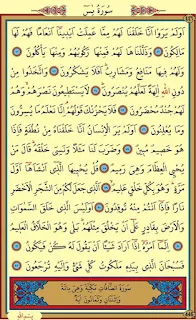 سُورَةُ يٰسٓ
أَوَلَمْ يَرَوْا أَنَّا خَلَقْنَا لَهُمْ مِمَّا عَمِلَتْ أَيْدِينَا أَنْعَامًا فَهُمْ لَهَا
مَالِكُونَ وَذَلَّلْنَاهَا لَهُمْ فَمِنْهَا رَكُوبُهُمْ وَمِنْهَا يَأْكُلُونَ
وَلَهُمْ فِيهَا مَنَافِعُ وَمَشَارِبُ أَفَلَا يَشْكُرُونَ وَاتَّخَذُوا مِنْ
دُونِ اللّٰهِ آلِهَةً لَعَلَّهُمْ يُنْصَرُونَ لَا يَسْتَطِيعُونَ نَصْرَهُمْ وَهُمْ
لَهُمْ جُنْدٌ مُحْضَرُونَ فَلَا يَحْزُنْكَ قَوْلُهُمْ إِنَّا نَعْلَمُ مَا يُسِرُّونَ
وَمَا يُعْلِنُونَ أَوَلَمْ يَرَ الْإِنْسَانُ أَنَّا خَلَقْنَاهُ مِنْ نُطْفَةٍ فَإِذَا
هُوَ خَصِيمٌ مُبِينٌ وَضَرَبَ لَنَا مَثَلًا وَنَسِيَ خَلْقَهُ قَالَ مَنْ
يُحْيِي الْعِظَامَ وَهِيَ رَمِيمٌ قُلْ يُحْيِيهَا الَّذِي أَنْشَأَهَا أَوَّلَ
مَرَّةٍ وَهُوَ بِكُلِّ خَلْقٍ عَلِيمٌ الَّذِي جَعَلَ لَكُمْ مِنَ الشَّجَرِ الْأَخْضَرِ
نَارًا فَإِذَا أَنْتُمْ مِنْهُ تُوقِدُونَ أَوَلَيْسَ الَّذِي خَلَقَ السَّمٰوَاتِ
وَالْأَرْضَ بِقَادِرٍ عَلٰى أَنْ يَخْلُقَ مِثْلَهُمْ بَلٰى وَهُوَ الْخَلَّاقُ الْعَلِيمُ
إِنَّمَا أَمْرُهُ إِذَا أَرَادَ شَيْئًا أَنْ يَقُولَ لَهُ كُنْ فَيَكُونُ
فَسُبْحَانَ الَّذِي بِيَدِهِ مَلَكُوتُ كُلِّ شَيْءٍ وَإِلَيْهِ تُرْجَعُونَ
سُورَةُ الصَّافَّاتِ مَكِّيَّةٌ وَهِيَ مِائَةٌ
وَاثْنَتَانِ وَثَمَانُونَ آيَةً
بسم الله